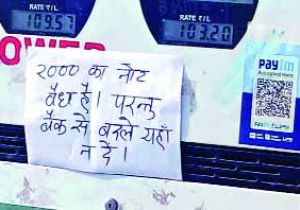 RATE ₹/L
109.57
RATE ₹/L
103.20
POWER
paytm
Accepted Here
२000 का नोट
वैध है। परन्तु
बैंक से बदले यहाँ
न दे।